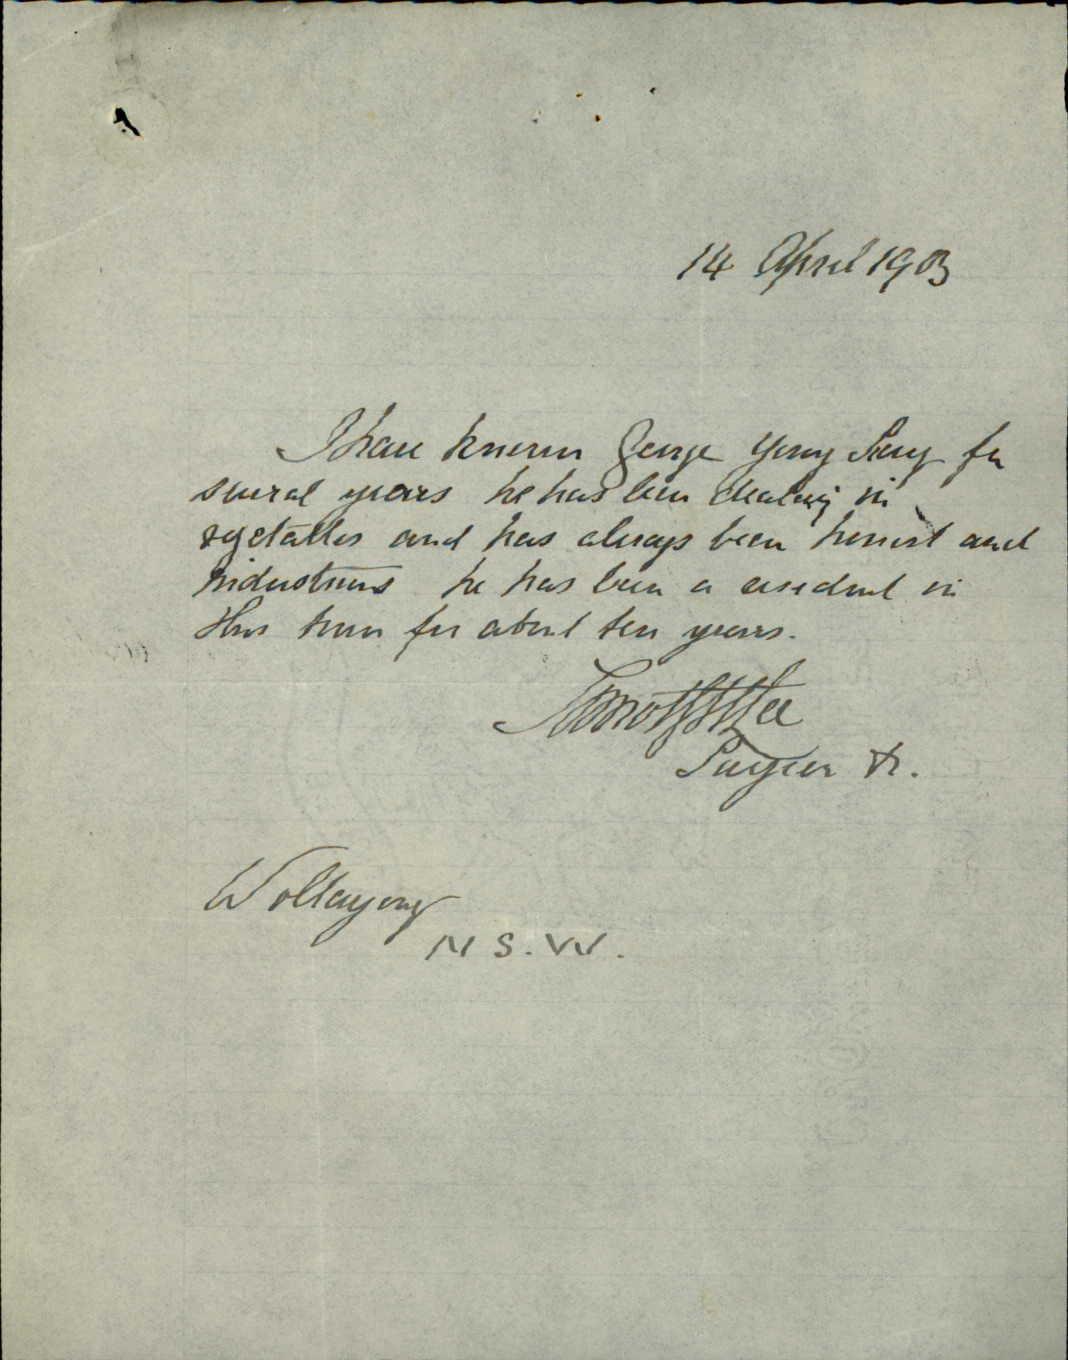 14 April 1903
I have known George Yong Sang for
several years he has been dealing in
vegetables and has always been honest and
industrious he has been a resident in
this town for about ten years.
Timothy Lee
Surgeon &c.
Wollongong
N S. W.